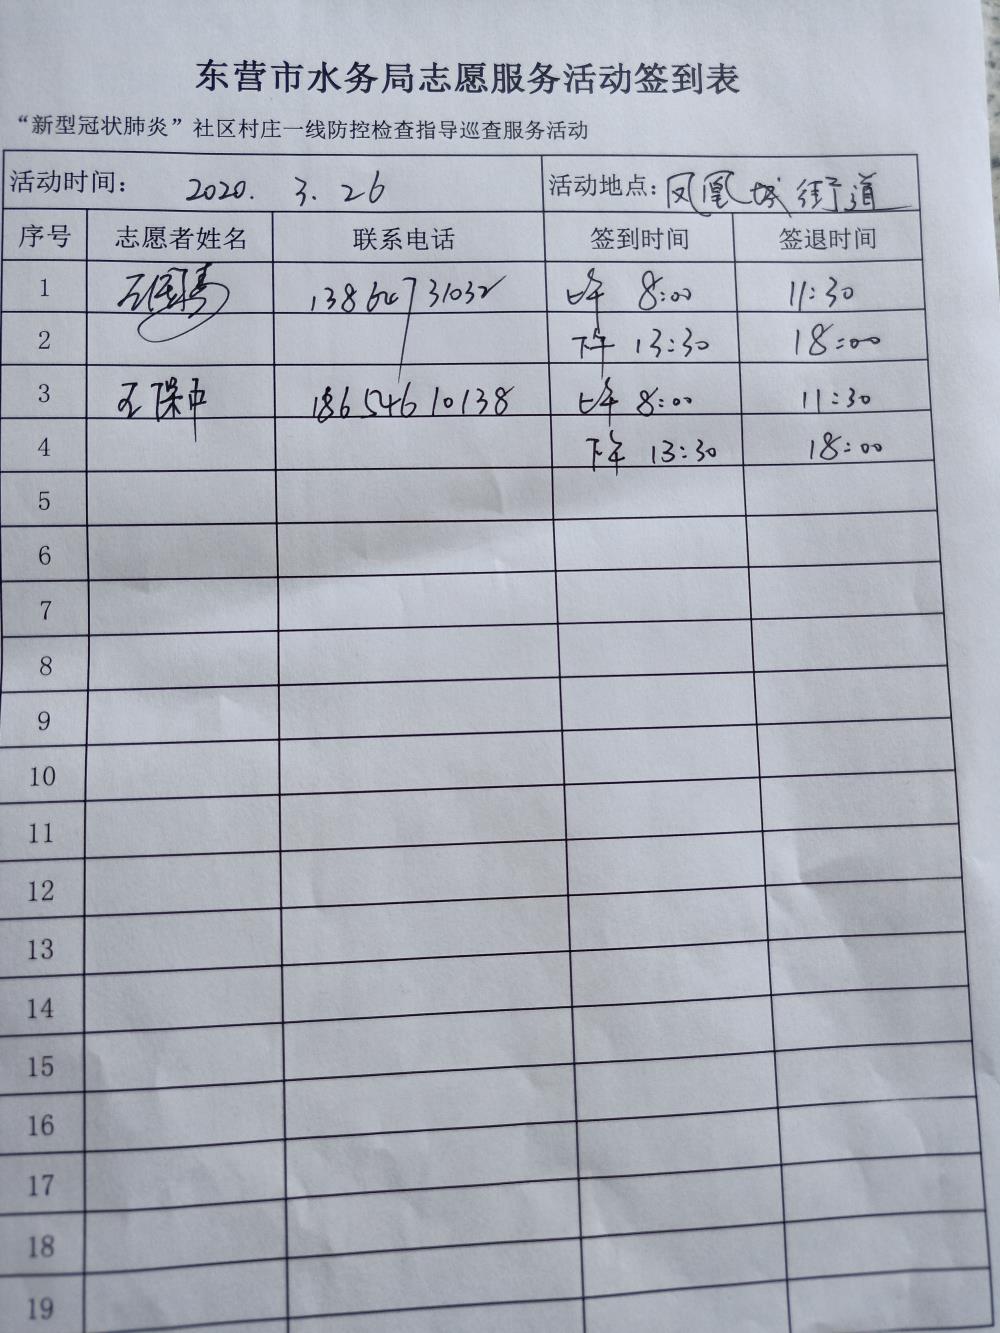 东营市水务局志愿服务活动签到表
“新型冠状肺炎”社区村庄一线防控检查指导巡查服务活动
活动时间： 2020. 3. 26 活动地点：凤凰城街道
序号 志愿者姓名 联系电话 签到时间 签退时间
1 13864731032 上午 8:00 11:30
2 下午 13:30 18:00
3 王保中 18654610138 上午 8:00 11:30
4 下午 13:30 18:00
5
6
7
8
9
10
11
12
13
14
15
16
17
18
19